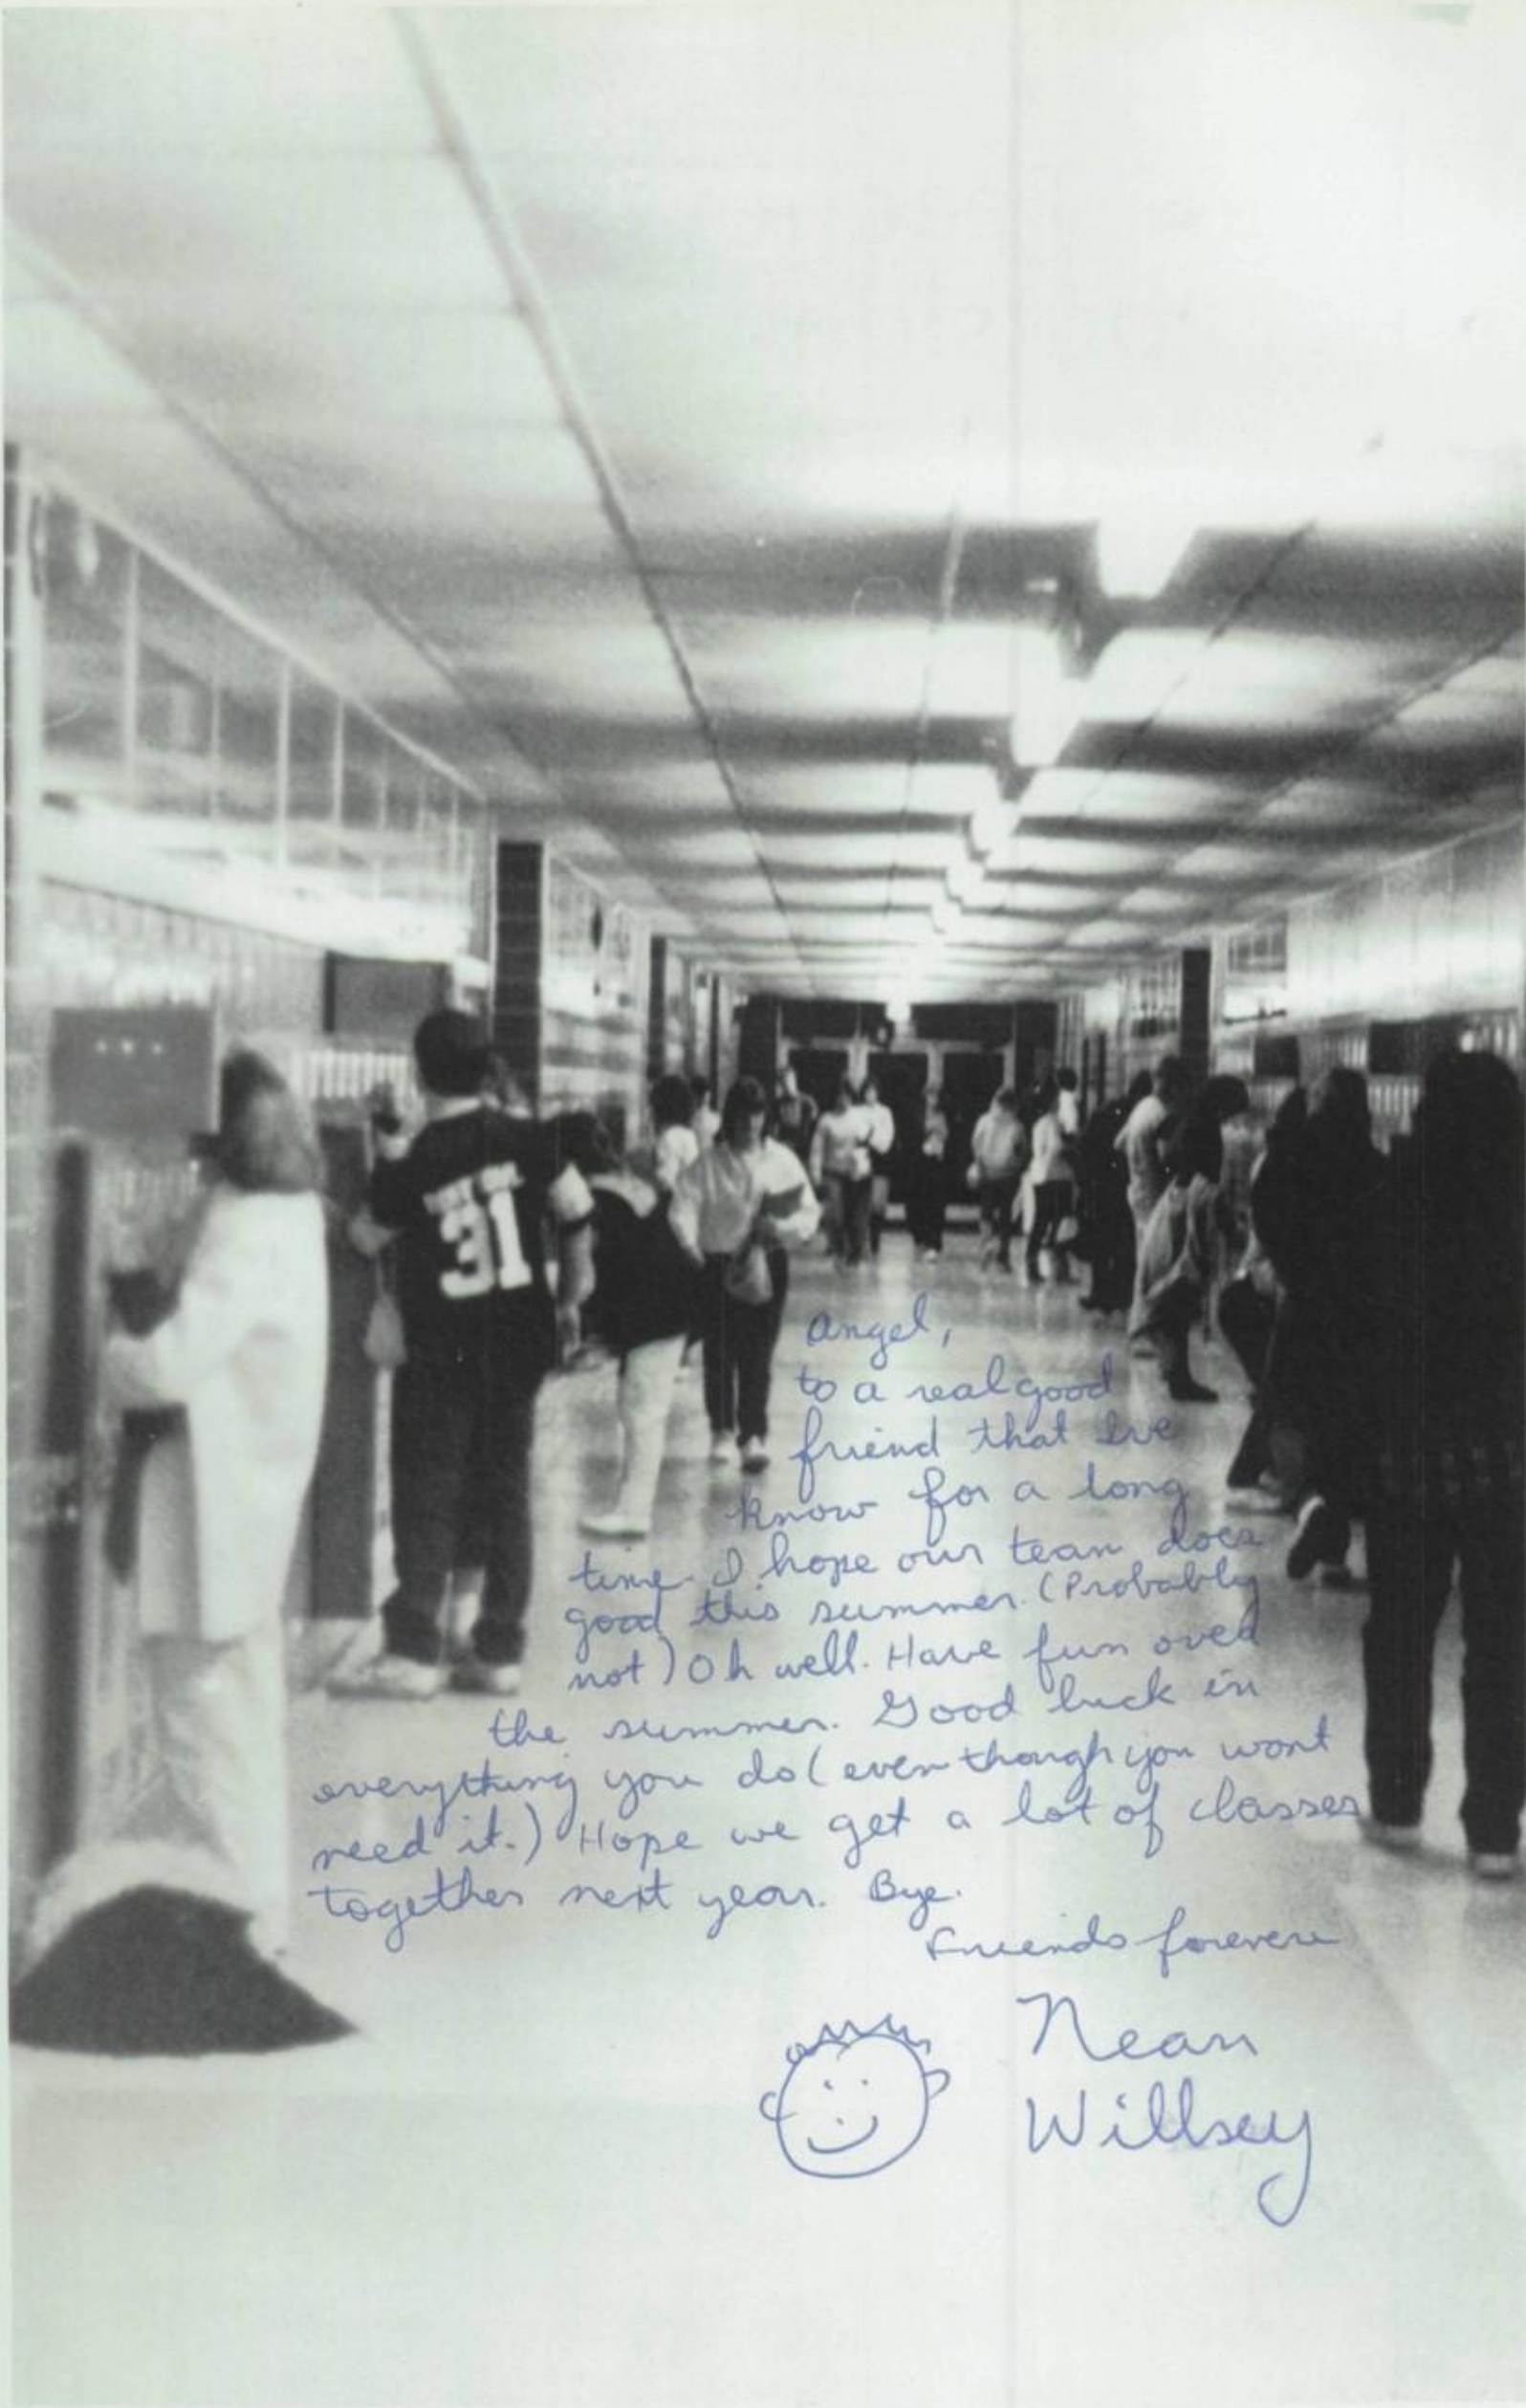 31
Angel,
to a real good
friend that Ive
know for a long
time. I hope our team does
good this summer. (Probably
not) Oh well. Have fun over
the summer. Good luck in
everything you do (even though you wont
need it.) Hope we get a lot of classes
together next year. Bye.
Friends forever
Nean
Willsey